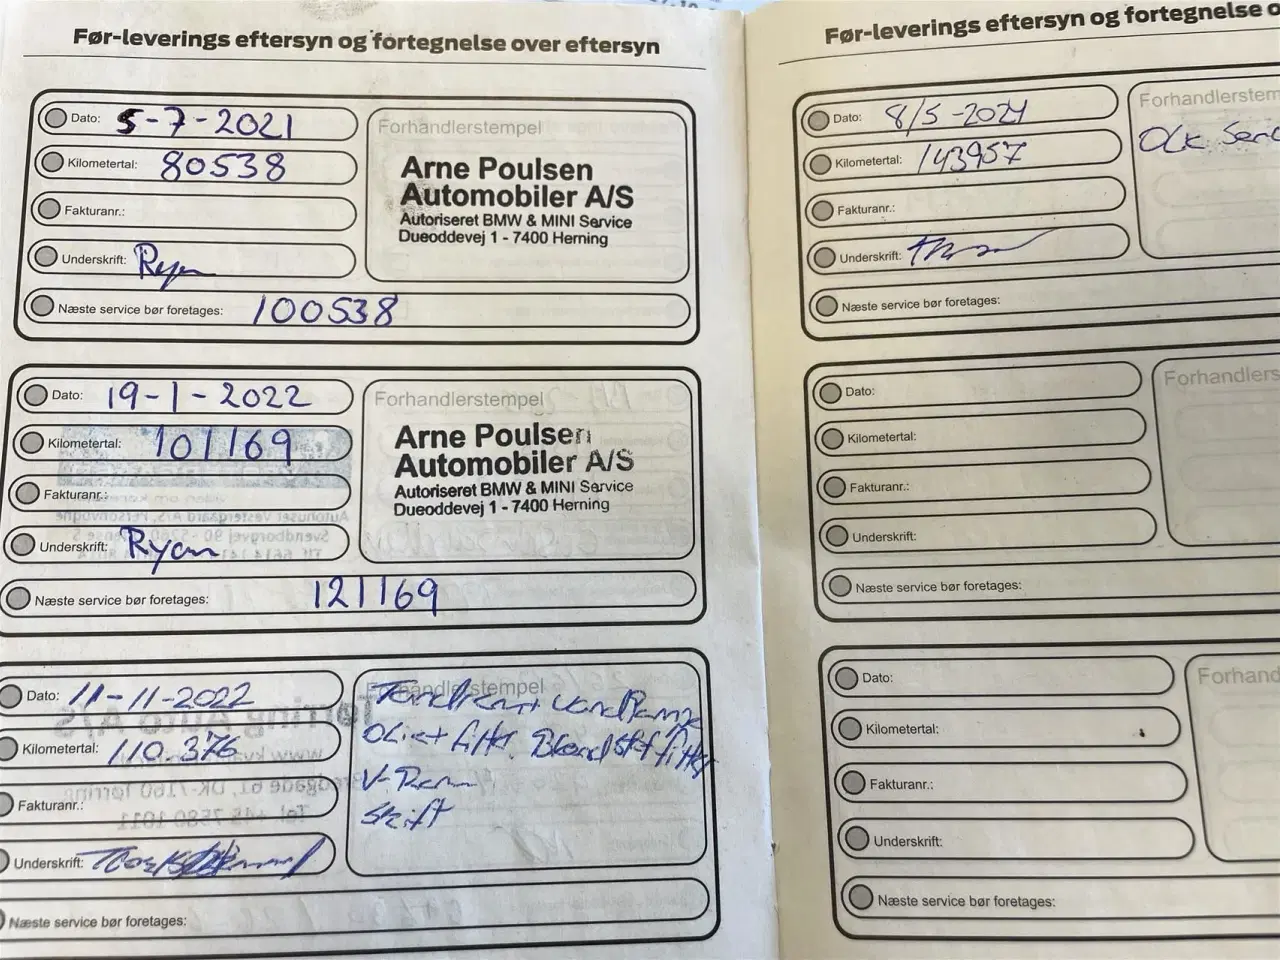 Før-leverings eftersyn og fortegnelse over eftersyn
Dato: 5-7-2021
Kilometertal: 80538
Fakturanr.:
Underskrift: Ryan
Næste service bør foretages: 100538
Forhandlerstempel
Arne Poulsen
Automobiler A/S
Autoriseret BMW & MINI Service
Dueoddevej 1 - 7400 Herning
Dato: 19-1-2022
Kilometertal: 101169
Fakturanr.:
Underskrift: Ryan
Næste service bør foretages: 121169
Forhandlerstempel
Arne Poulsen
Automobiler A/S
Autoriseret BMW & MINI Service
Dueoddevej 1 - 7400 Herning
Dato: 11-11-2022
Kilometertal: 110.376
Fakturanr.:
Underskrift:
Næste service bør foretages:
Forhandlerstempel
Tandrem+ vandpumpe
Olie+ filter
V-Rem
Skift
Før-leverings eftersyn og fortegnelse o
Dato: 8/5-2024
Kilometertal: 143957
Fakturanr.:
Underskrift:
Næste service bør foretages:
Forhandlerstem
Dato:
Kilometertal:
Fakturanr.:
Underskrift:
Næste service bør foretages:
Forhandlers
Dato:
Kilometertal:
Fakturanr.:
Underskrift:
Næste service bør foretages:
Forhand